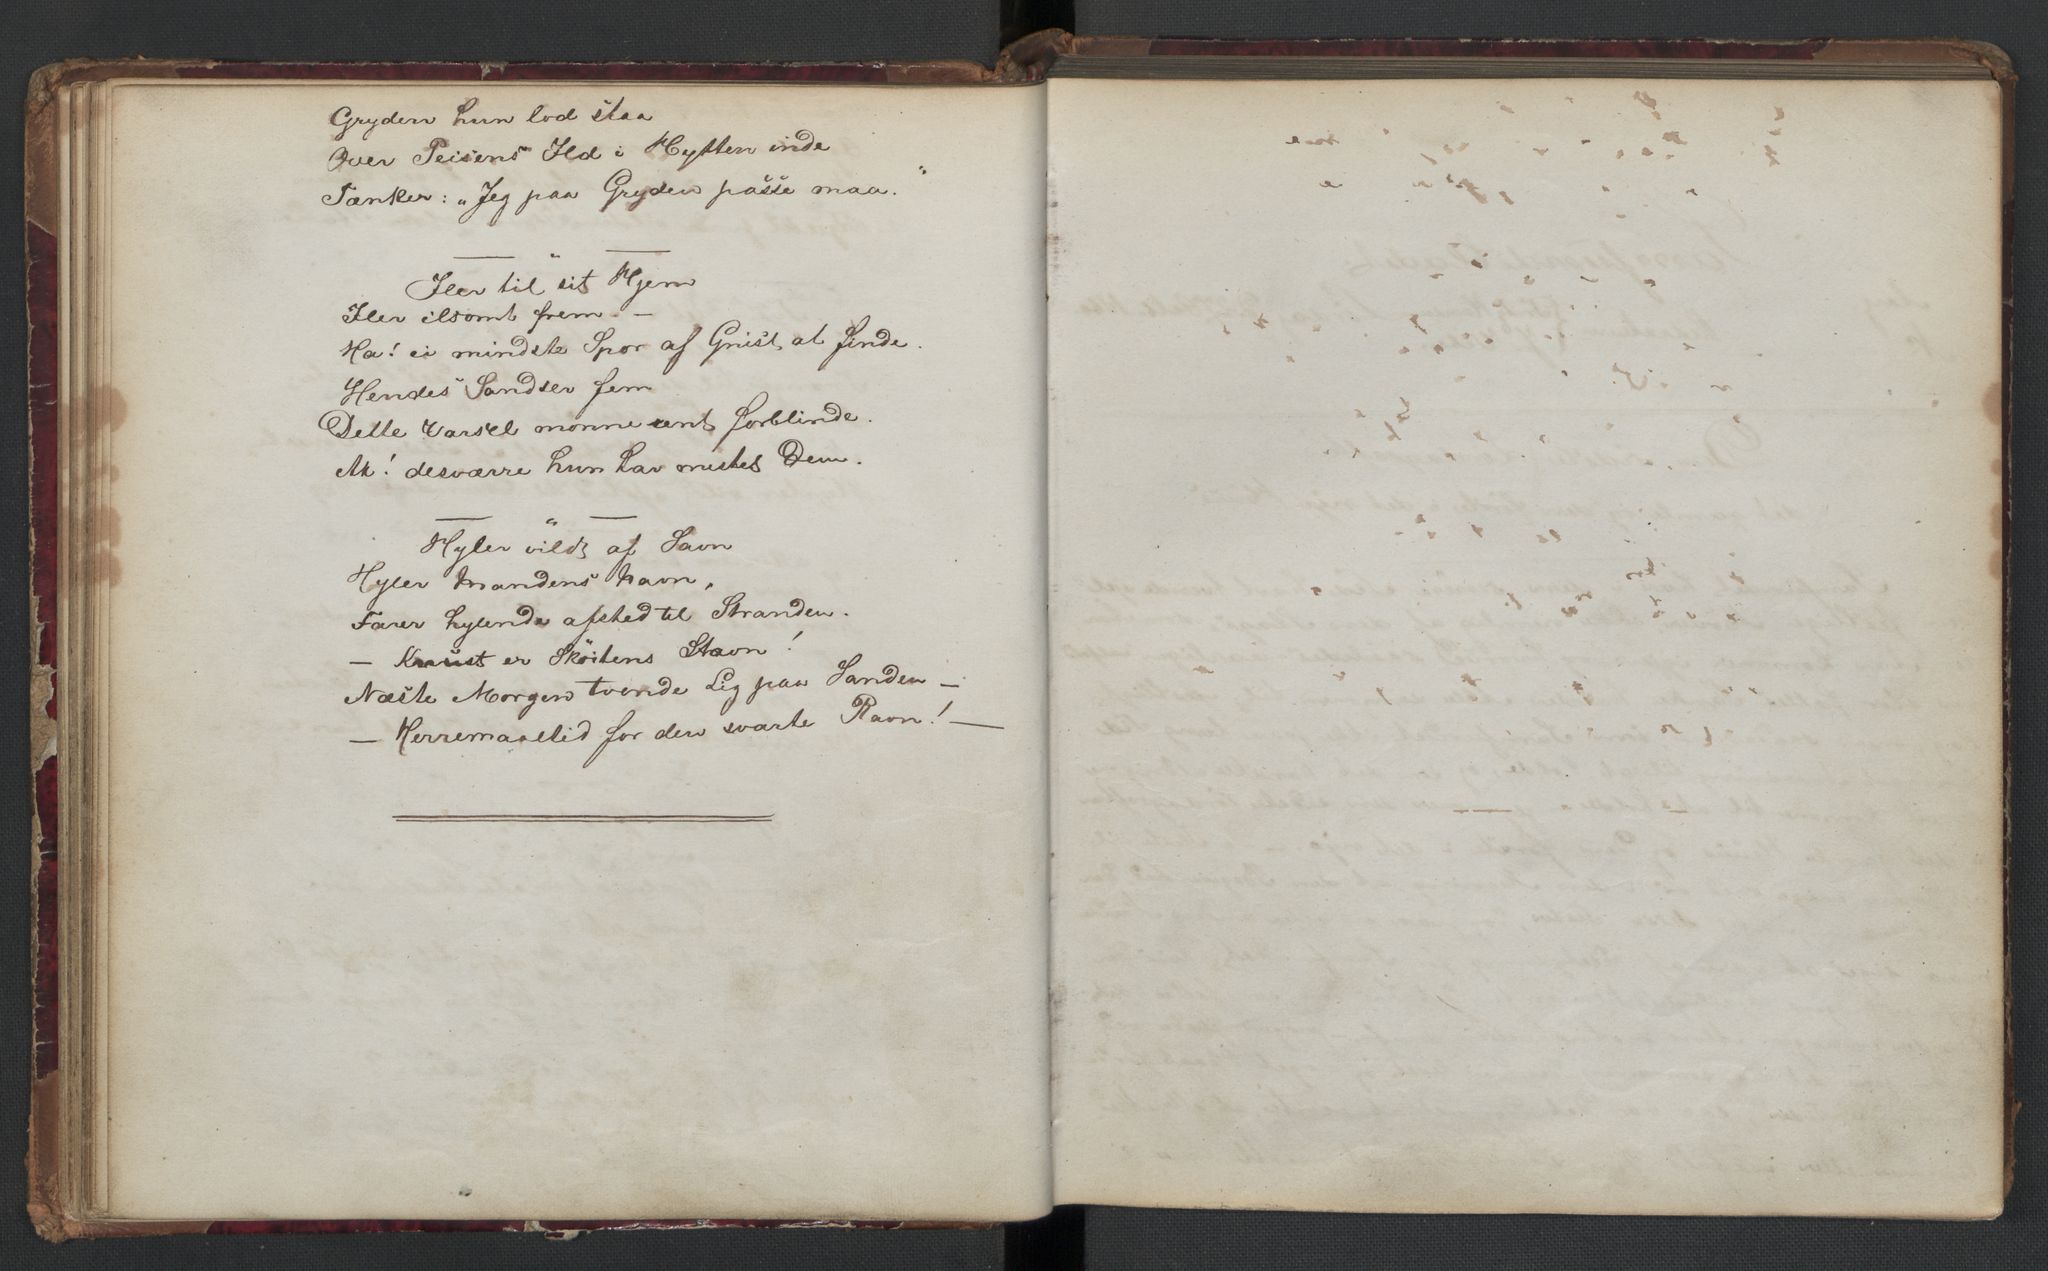 Gryden hun lod staa
Over Peisens Ild i Hytten inde
Tænker: „Jeg paa Gryden passe maa."
Iler til sit Hjem
Iler ilsomt frem –
Ha! ei mindste Spor af Gnist at finde.
Hendes Sandser fem
Dette Varsel monne rent forblinde.
Ak! desværre hun har mistet Dem.
Hyler vildt af Savn
Hyler Mandens Navn,
Farer hylende afsted til Stranden.
– Knust er Skøitens Stavn!
Næste Morgen tvende Lig paa Sanden –
– Herremaaltid for den svarte Ravn! –